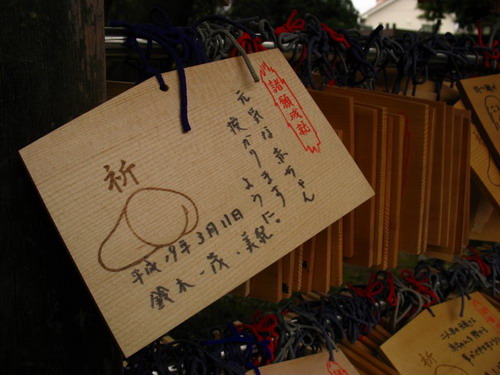 諸願成就
元気な赤ちゃん
授かりますように。
祈
平成19年3月11日
鈴木 茂・美紀
祈